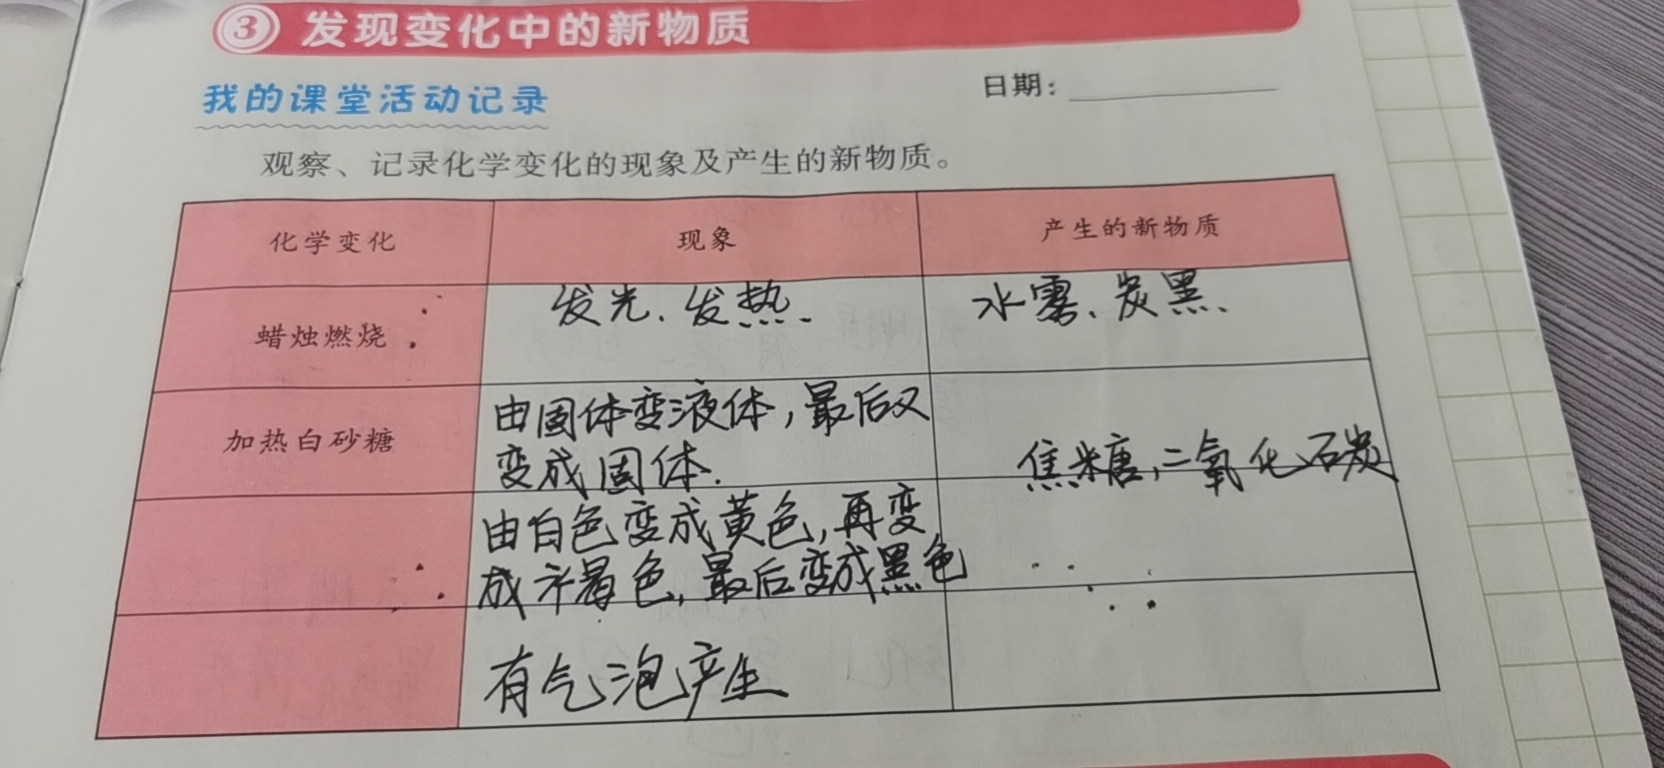 ③ 发现变化中的新物质
我的课堂活动记录
日期：
观察、记录化学变化的现象及产生的新物质。
化学变化 现象 产生的新物质
蜡烛燃烧 发光、发热. 水雾、炭黑、
加热白砂糖 由固体变液体，最后又
变成固体. 焦糖，二氧化石炭
由白色变成黄色，再变
成褐色，最后变成黑色
有气泡产生